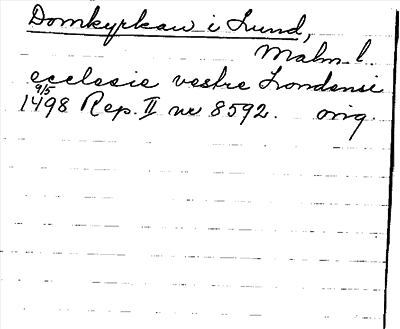 Domkyrkan i Lund,
Malm. l.
ecclesie vestre Londensi
9/5
1498 Rep. II nr 8592. orig.